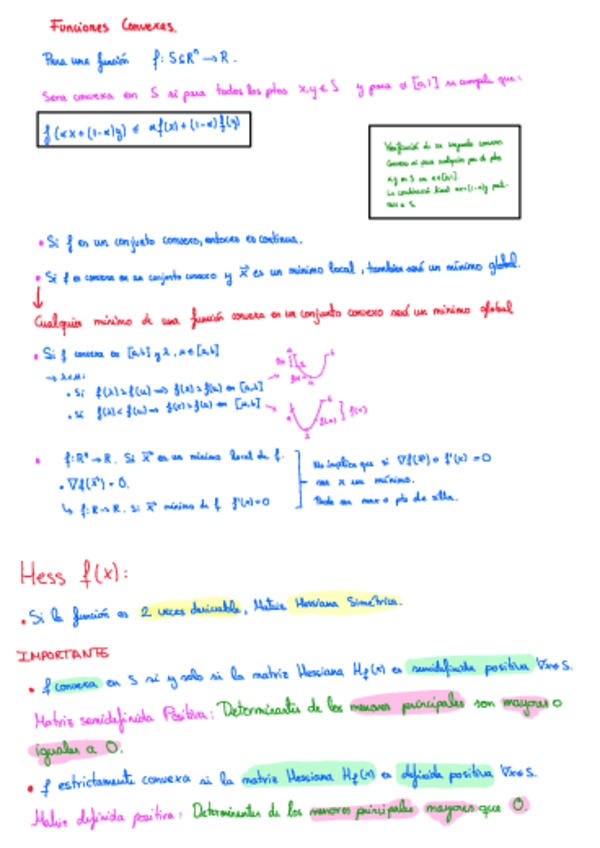 Funciones Convexas.
Para una función f: S⊆Rⁿ → R.
Sera convexa en S si para todos los ptos x,y ∈ S y para α [0,1] se cumple que:
f(αx+(1-α)y) ≤ αf(x)+(1-α)f(y)
Verificación de un conjunto convexo
Convexo si para cualquier par de ptos
x,y en S con α∈[0,1].
La combinació lineal αx+(1-α)y
S.
• Si f es un conjunto convexo, entonces es continua.
• Si f es convexa en un conjunto convexo y x̄ es un mínimo local, también será un mínimo global.
↓
Cualquier mínimo de una función convexa en un conjunto convexo será un mínimo global
• Si f convexa en [a,b] y λ, μ ∈ [a,b]
→ λ<μ:
• Si f(λ)>f(μ) ⇒ f(z)>f(μ) en [a,λ]
• Si f(λ)<f(μ) ⇒ en [μ,b]
• f: Rⁿ → R. Si x̄* es un mínimo local de f.
• ∇f(x̄*) = 0.
↳ f: R → R. Si x̄* mínimo de f f'(x)=0
No implica que si ∇f(x̄) o f'(x) = 0
sea x un mínimo.
Puede ser max o pto de silla.
Hess f(x):
• Si la función es 2 veces derivable, Matriz Hessiana Simétrica.
IMPORTANTE
• f convexa en S si y solo si la matriz Hessiana Hf(x) es semidefinida positiva ∀x∈S.
Matriz semidefinida Positiva: Determinantes de los menores principales son mayores o
iguales a 0.
• f estrictamente convexa si la matriz Hessiana Hf(x) es definida positiva ∀x∈S.
Matriz definida positiva: Determinantes de los menores principales mayores que 0.